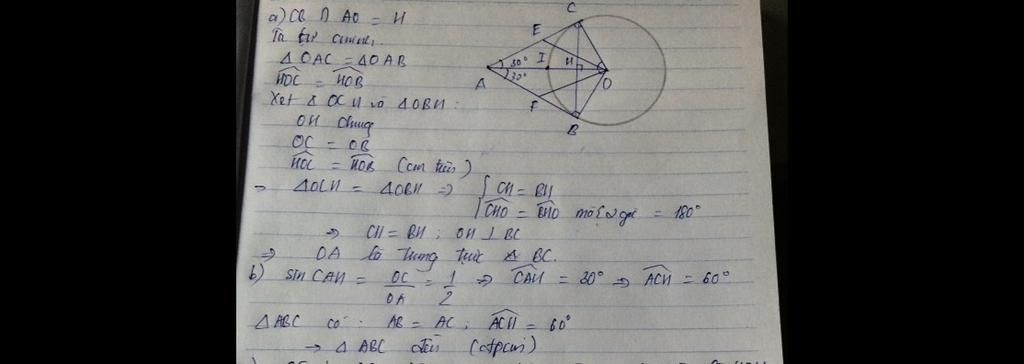 a) CB ∩ AO = H
Ta tự cminh,
△OAC = △OAB
HOC = HOB
Xét △OCH và △OBH:
OH chung
OC = OB
HOC = HOB (cm trên)
⇒ △OCH = △OBH ⇒ { CH = BH
CHO = BHO mà 2 góc = 180°
⇒ CH = BH ; OH ⊥ BC
⇒ OA là trung trực BC.
b) sin CAH = OC/OA = 1/2 ⇒ CAH = 30° ⇒ ACH = 60°
△ABC có: AB = AC ; ACH = 60°
→ △ABC đều (đpcm)
C
E
30°
I
H
A
30°
O
F
B